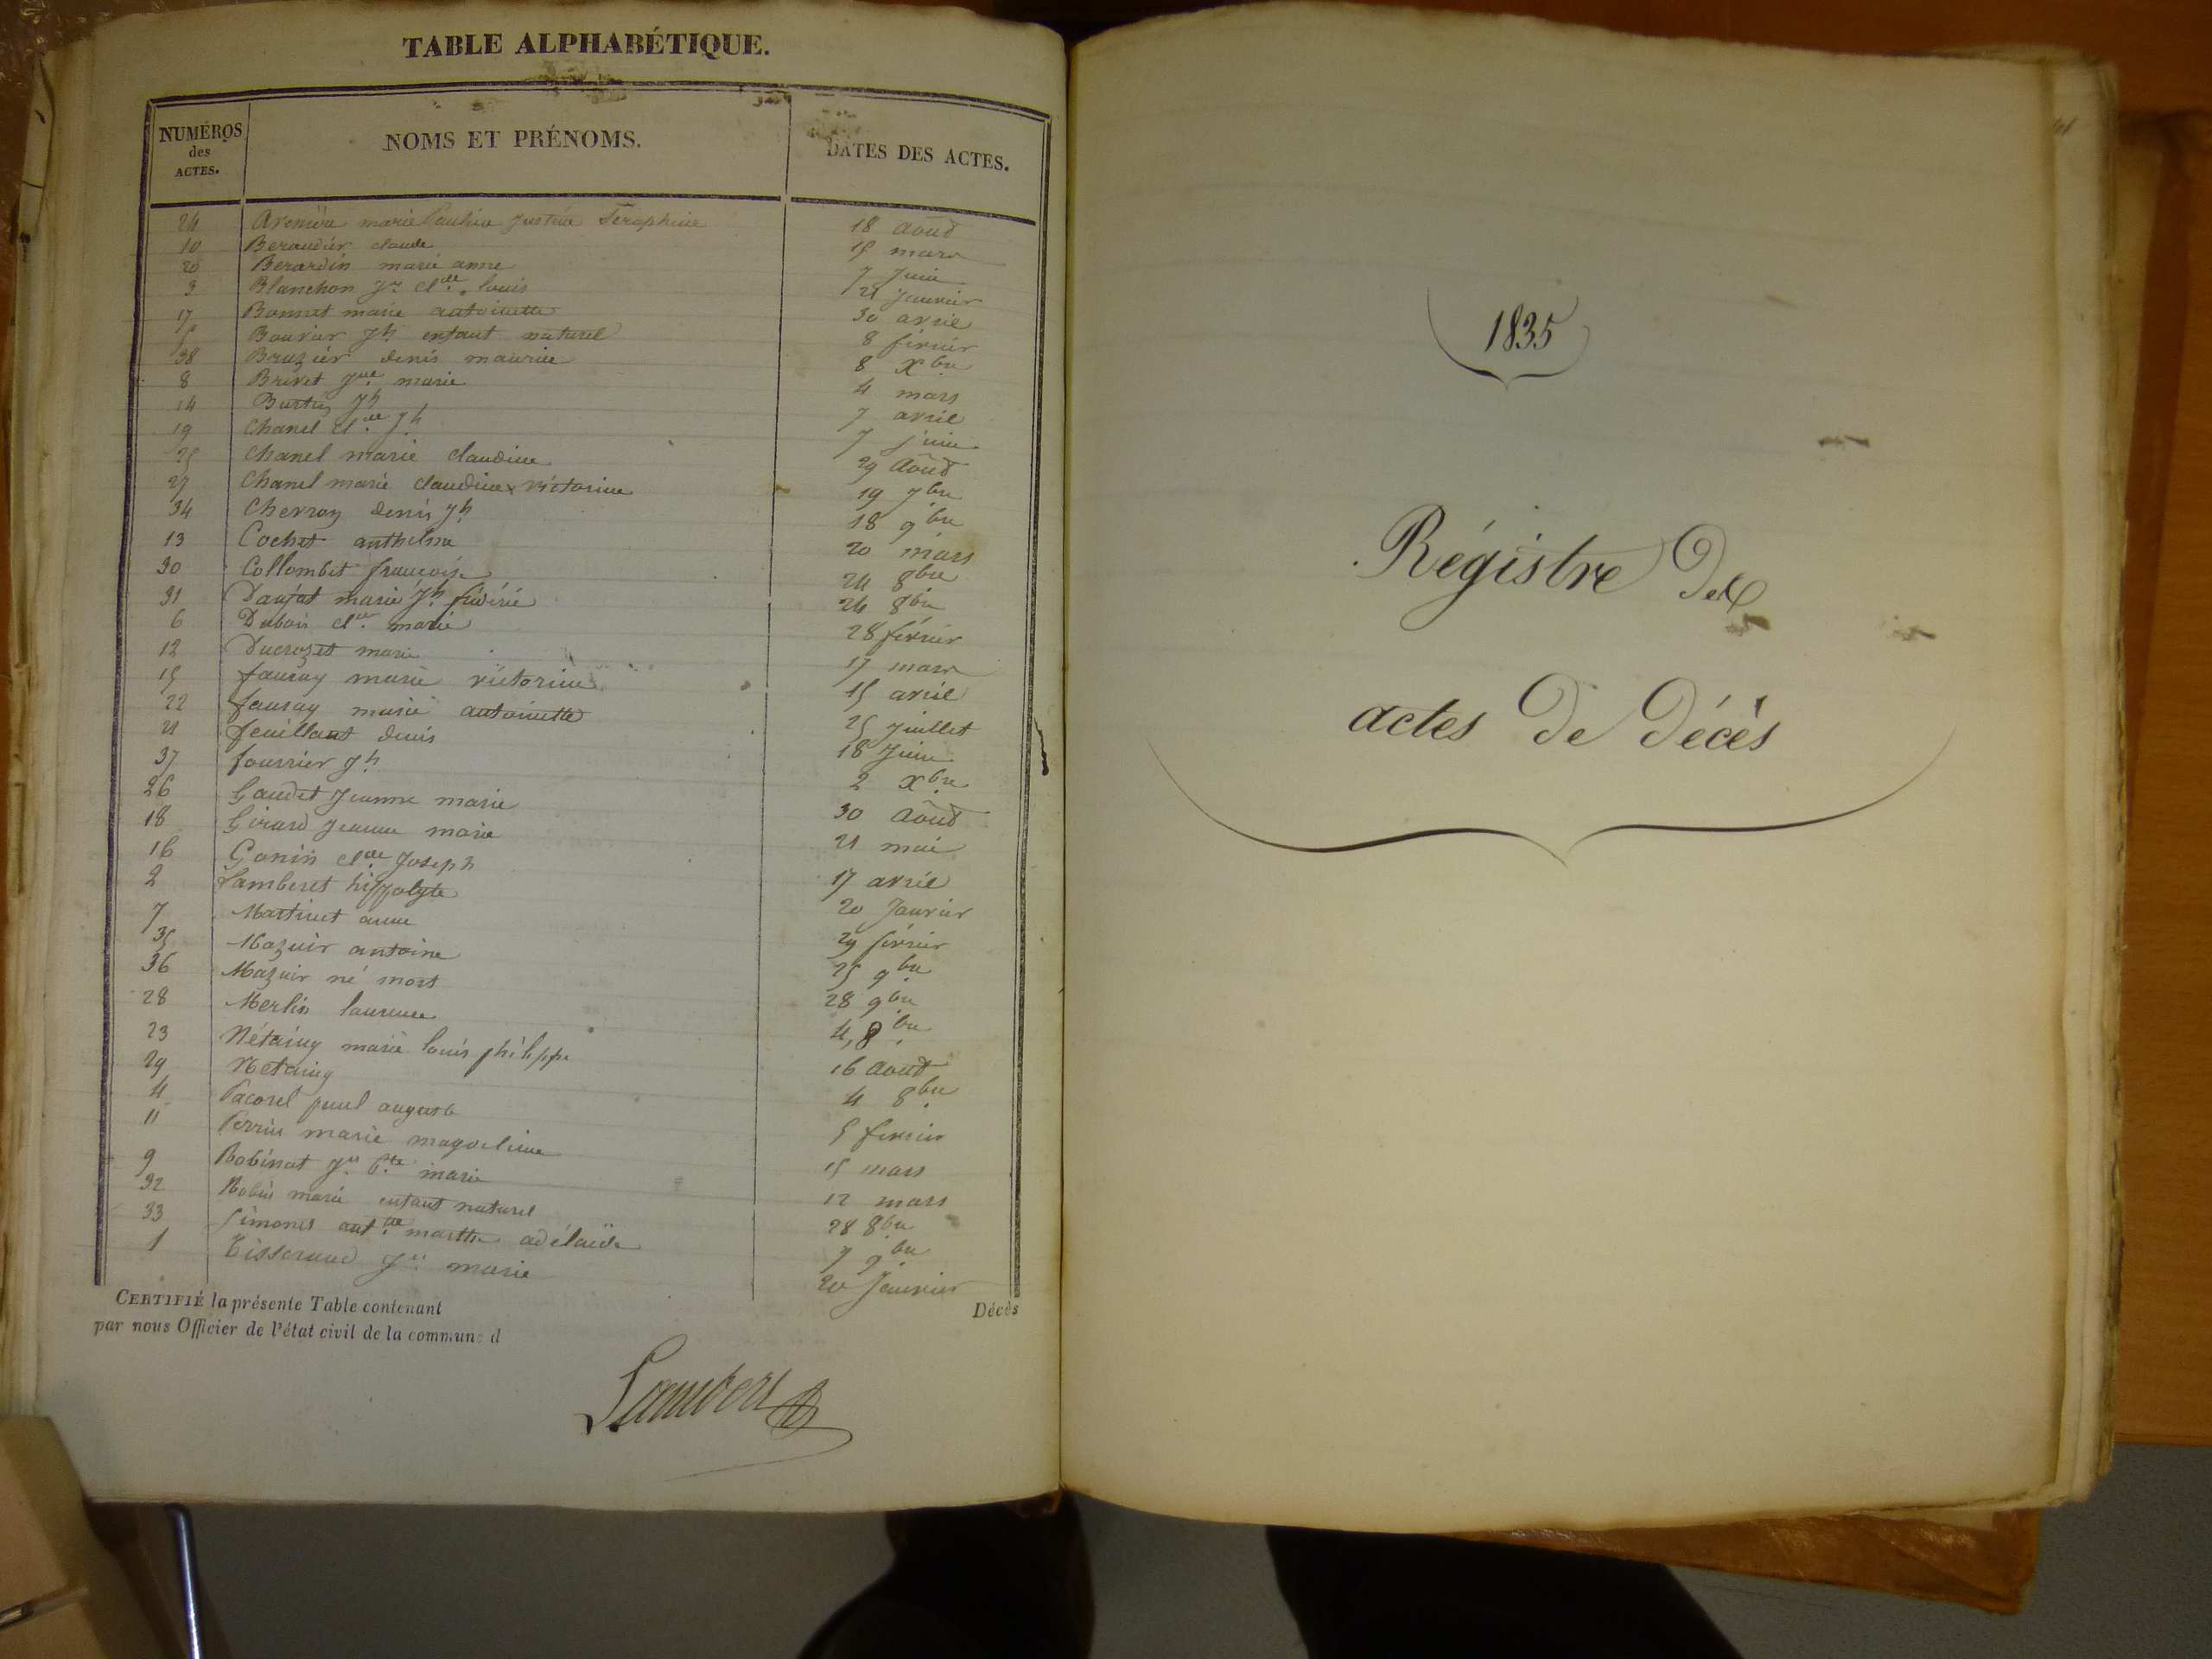 TABLE ALPHABÉTIQUE.
NUMÉROS des ACTES. NOMS ET PRÉNOMS. DATES DES ACTES.
24 marie Pauline Justine Séraphine 18 août
10 Beraudier claude 15 mars
20 Berardin marie anne 7 Juin
3 Blanchon Jn Clde louis 21 Janvier
17 Bonnet marie antoinette 30 avril
5 Bouvier Jh enfant naturel 8 février
38 Bouzier denis maurice 8 Xbre
8 Brevet Jne marie 4 mars
14 Jh 7 avril
19 Chanel Clde Jh 7 juin
25 Chanel marie claudine 29 août
27 Chanel marie claudine victorine 19 7bre
34 denis Jh 18 9bre
13 Cochet anthelme 20 mars
30 Collombet françoise 24 8bre
31 marie Jh fréderic 24 8bre
6 Dubois Cl. marie 28 février
12 Ducrozet marie 17 mars
15 fauray marie victorine 15 avril
22 fauray marie antoinette 25 Juillet
21 feuillant denis 18 Juin
37 fournier Jh 2 Xbre
26 Gaudet Jeanne marie 30 août
18 Girard Jeanne marie 21 mai
16 Gonin Clde Joseph 17 avril
2 Lamberet hippolyte 20 Janvier
7 Martinet anne 29 février
35 Mazuir antoine 25 9bre
36 Mazuir né mort 28 9bre
28 Merlin laurence 4, 8bre
23 Nétaing marie louis philippe 16 août
29 Nétaing 4 8bre
4 Pacorel paul auguste 5 février
11 Perrin marie magdeleine 15 mars
9 Robinat Jn Bte marie 12 mars
32 Robin marie enfant naturel 28 8bre
33 Simonet antne marthe adélaïde 7 9bre
1 Tisserand Jn marie 20 Janvier
CERTIFIÉ la présente Table contenant Décès
par nous Officier de l'état civil de la commune d
Lamberet
1835
Régistre des
actes de décès